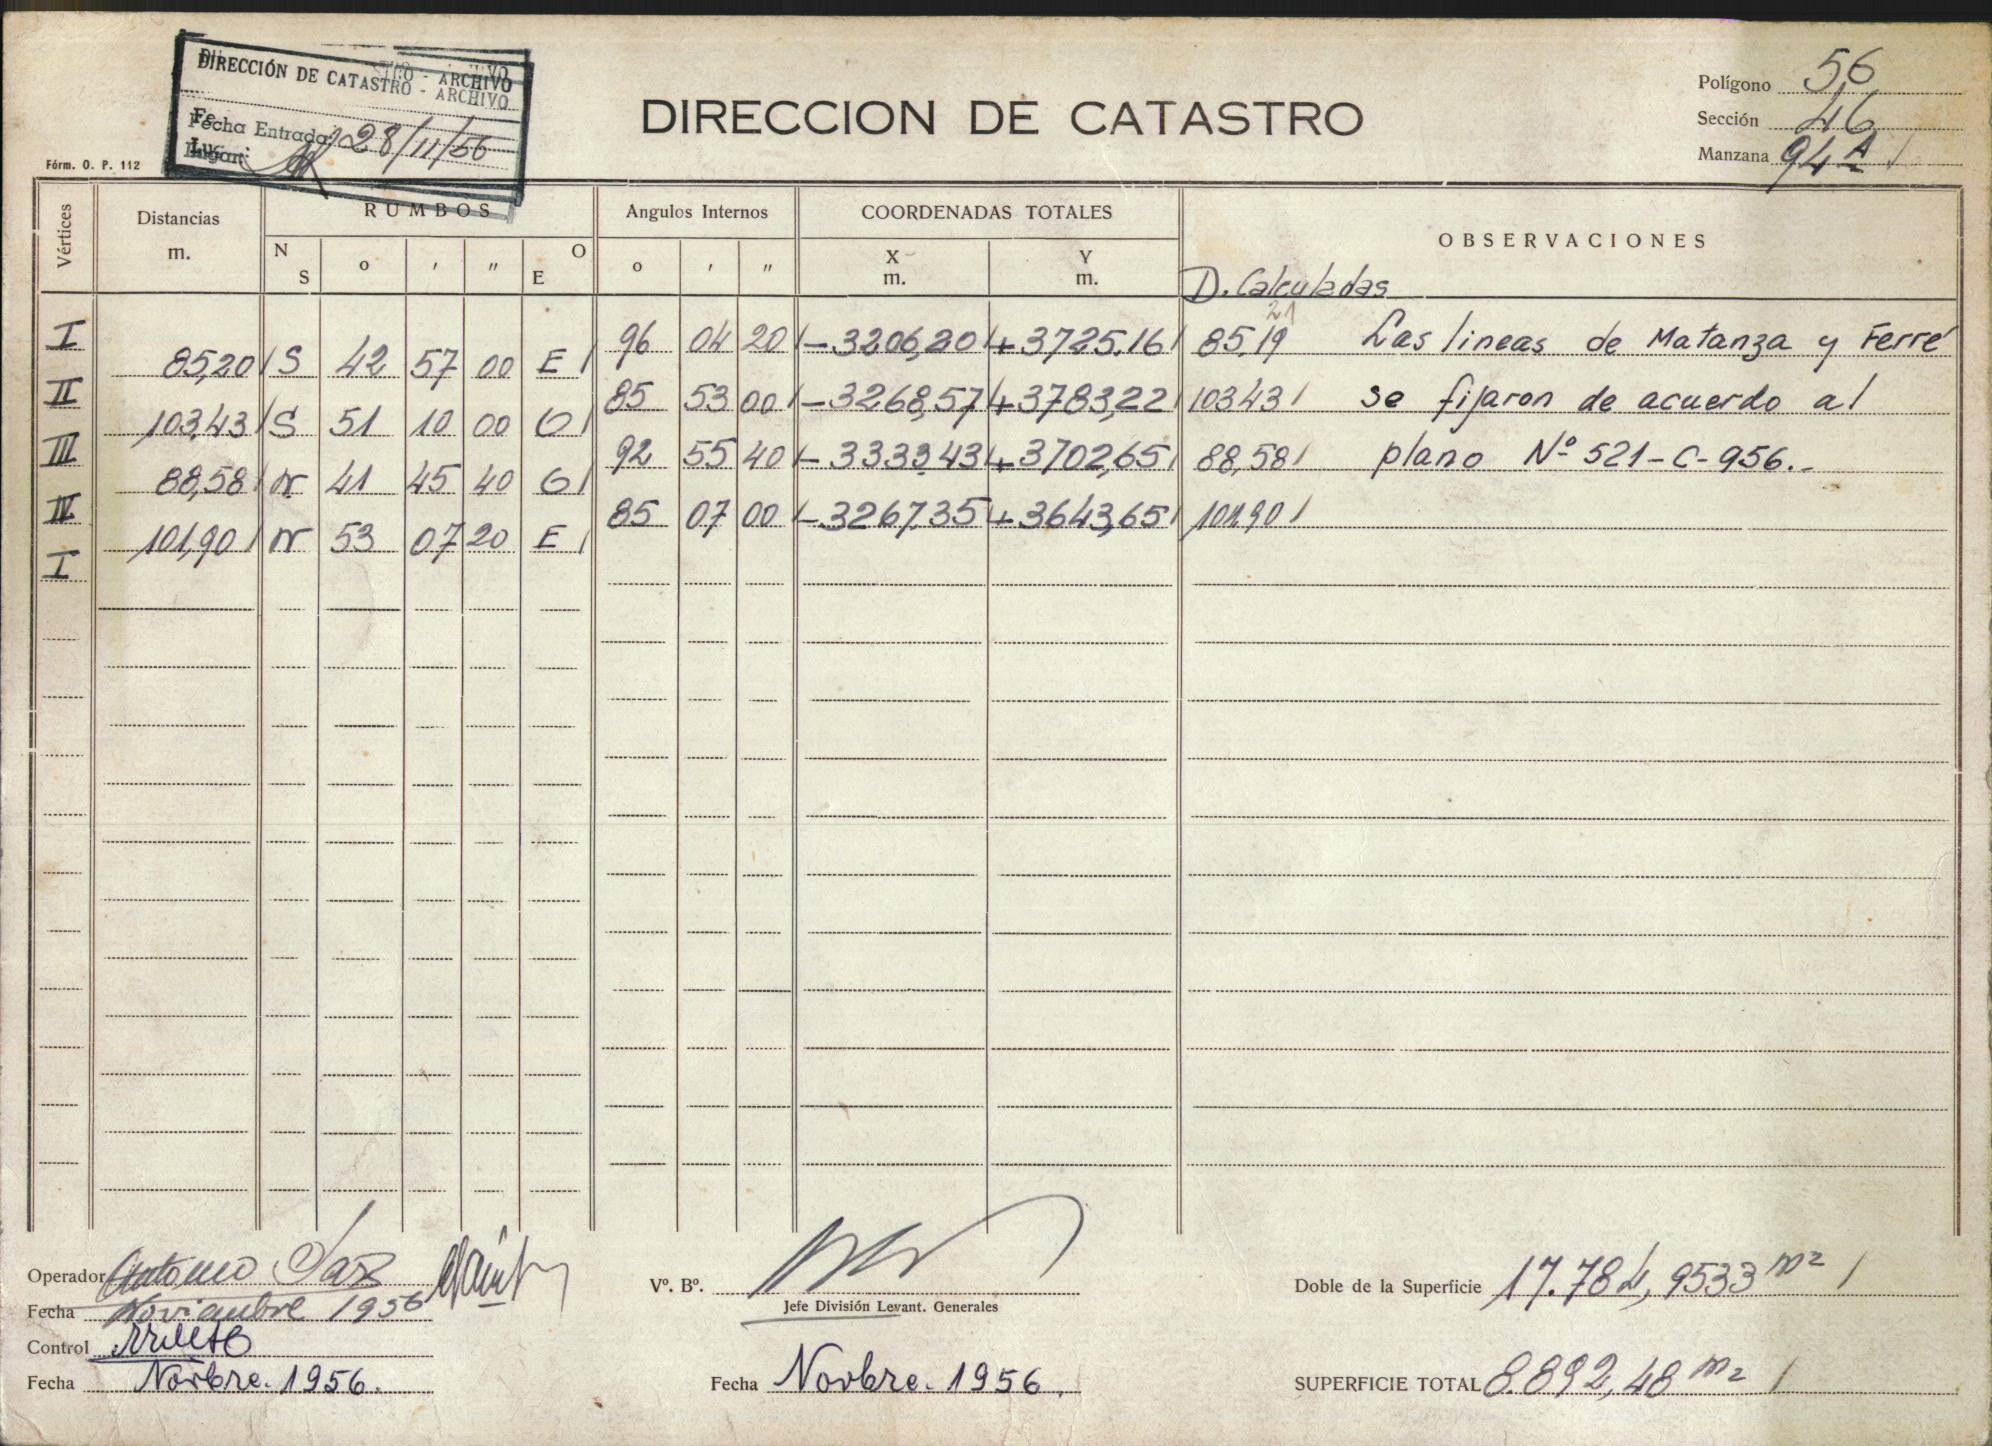 DIRECCIÓN DE CATASTRO - ARCHIVO
Fecha Entrada: 28/11/56
Lugar:
Fórm. O. P. 112
DIRECCION DE CATASTRO
Polígono 56
Sección 46
Manzana 94 A
Vértices Distancias m. RUMBOS Angulos Internos COORDENADAS TOTALES OBSERVACIONES
N S o ' " O E o ' " X m. Y m. D. Calculadas
21
I 96 04 20 -3206,20 +3725.16 85.19 Las lineas de Matanza y Ferré
85,20 S 42 57 00 E
II 85 53 00 -3268,57 +3783,22 103 43 se fijaron de acuerdo al
103,43 S 51 10 00 O
III 92 55 40 -3333,43 +3702,65 88,58 plano Nº 521-C-956.-
88,58 N 41 45 40 O
IV 85 07 00 -3267.35 +3643,65 101,90
101,90 N 53 07 20 E
I
Operador Antonio
Fecha Noviembre 1956
Control
Fecha Novbre. 1956.
Vº. Bº.
Jefe División Levant. Generales
Fecha Novbre. 1956.
Doble de la Superficie 17.784,9533 m2
SUPERFICIE TOTAL 8.892,48 m2